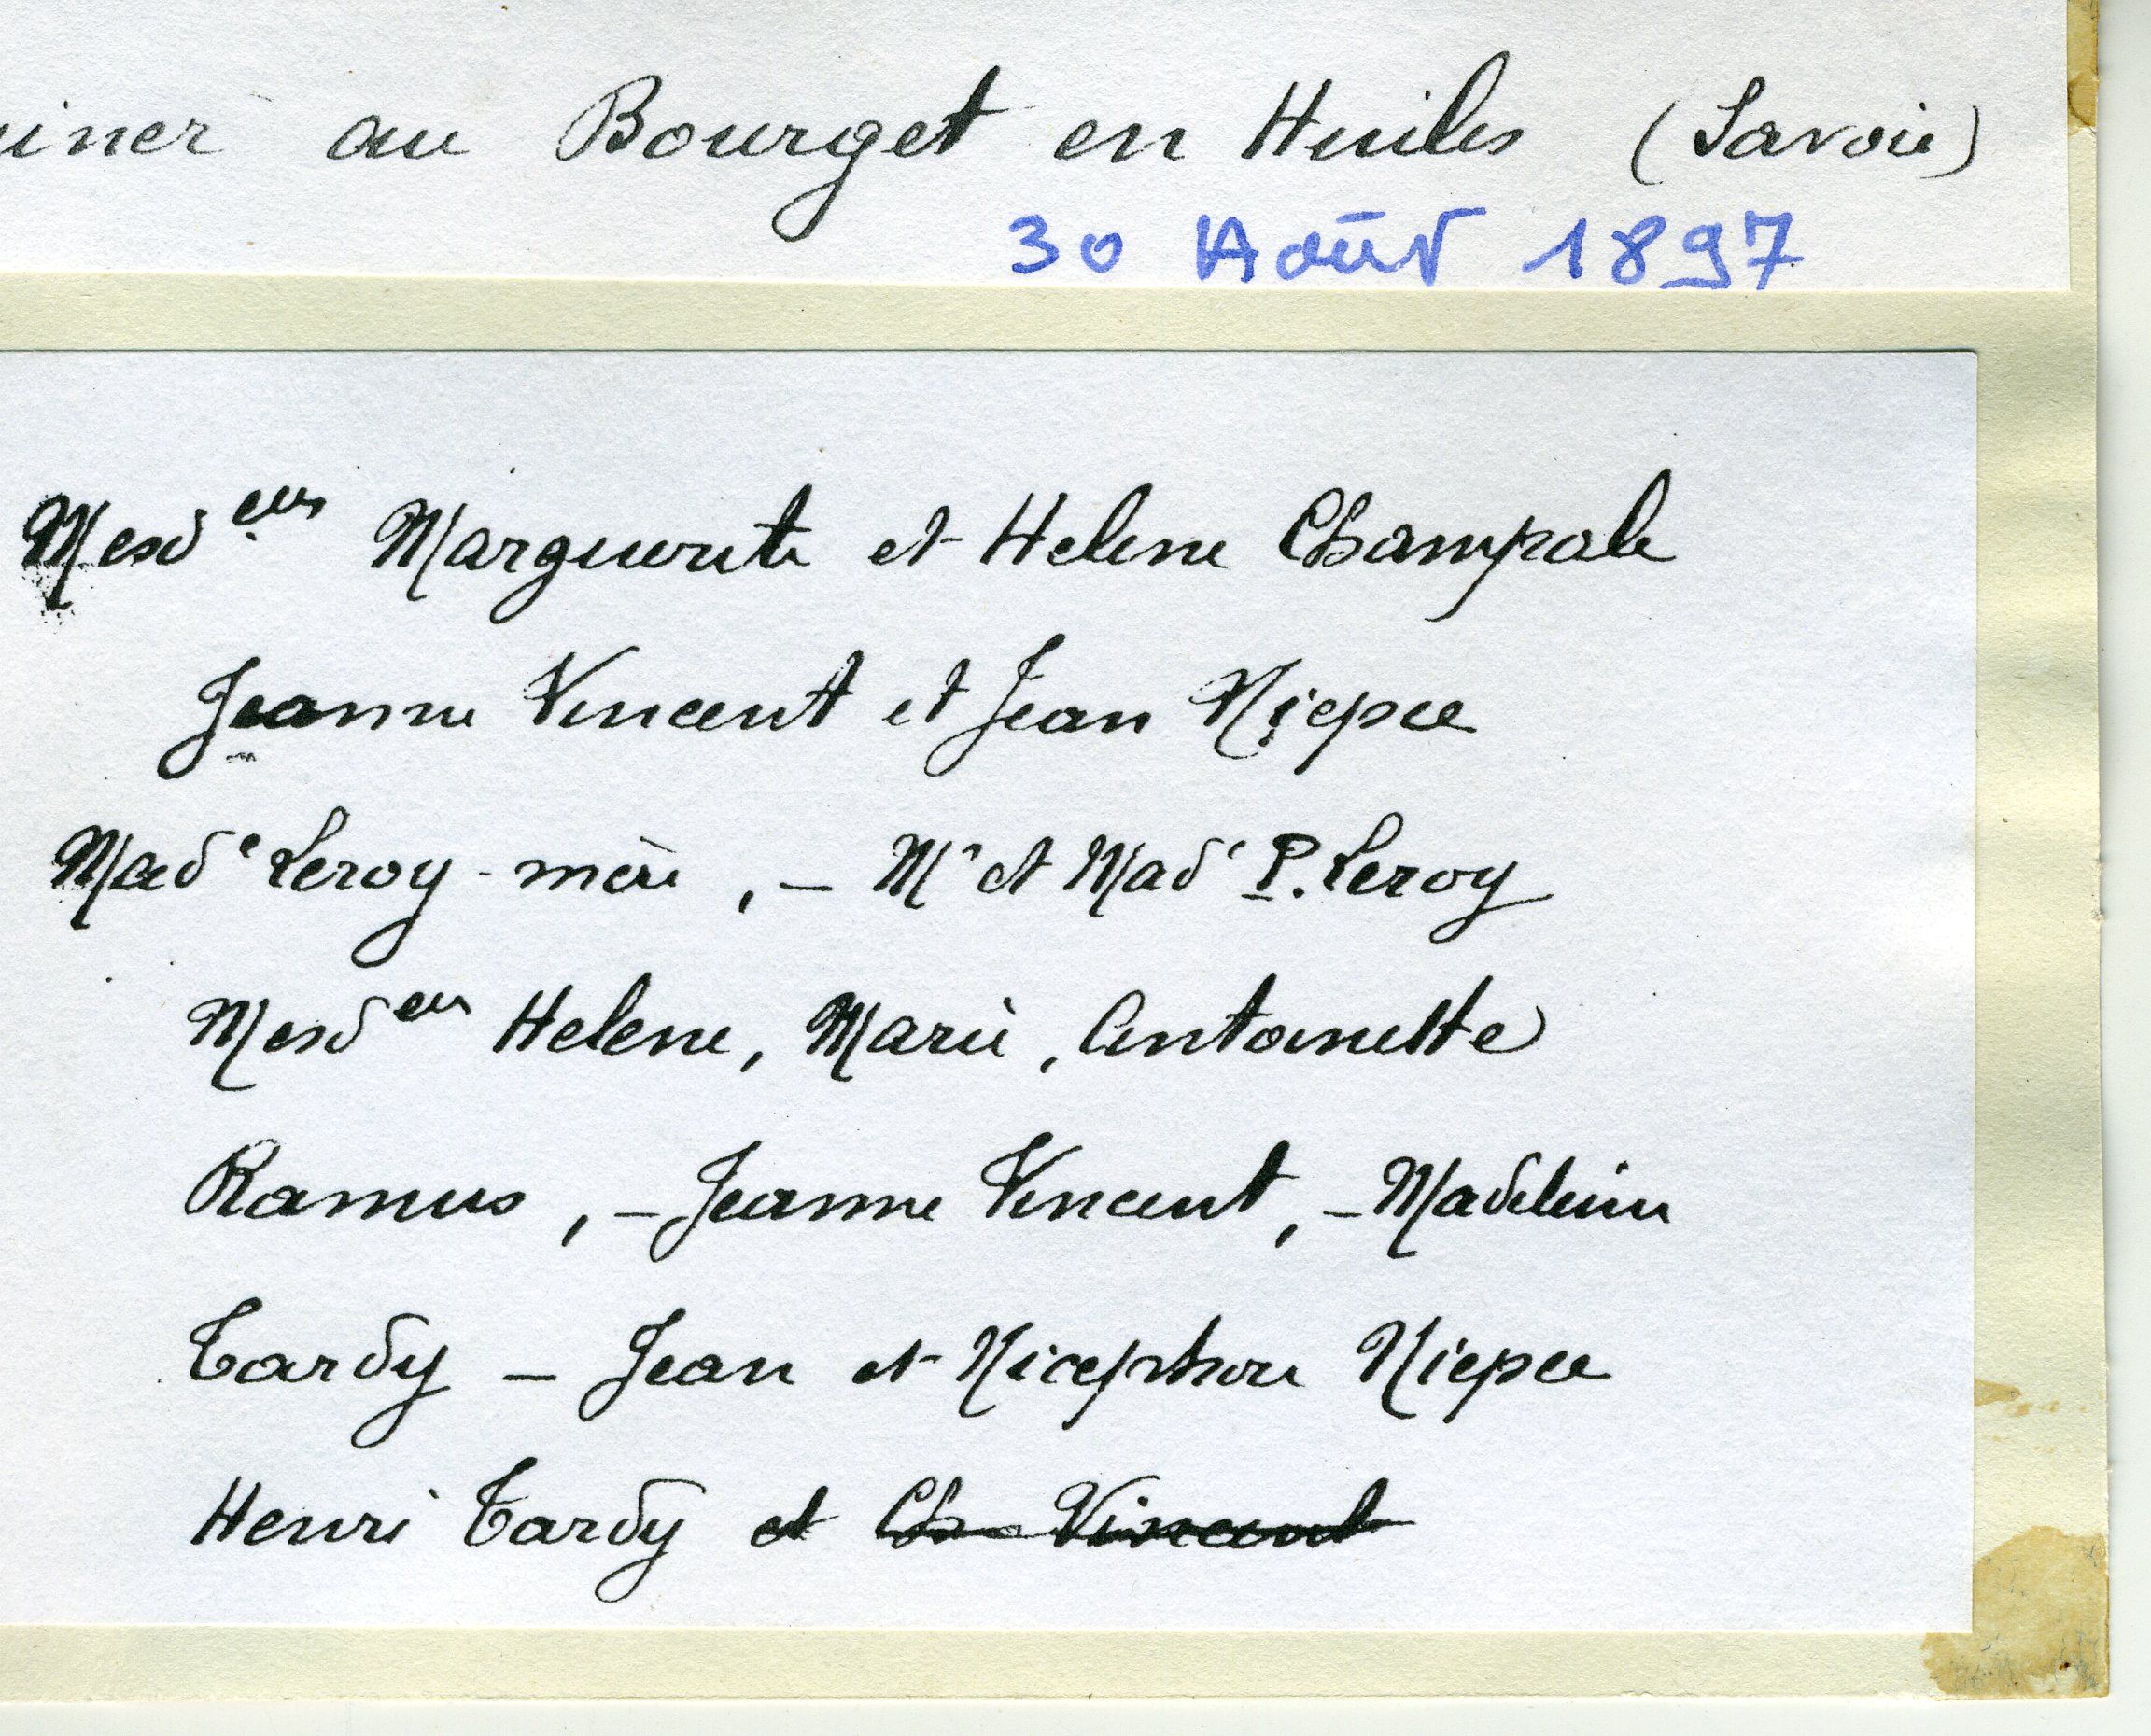 iner au Bourget en Huiles (Savoie)
30 Août 1897
Mesd elles Marguerite et Helene Champale
Jeanne Vincent et Jean Niepce
Mad e Leroy - mère , – M r et Mad e P. Leroy
Mesd elles Helene, Marie, Antoinette
Ramus, – Jeanne Vincent, – Madeleine
Tardy – Jean et Nicephore Niepce
Henri Tardy et Ch. Vincent